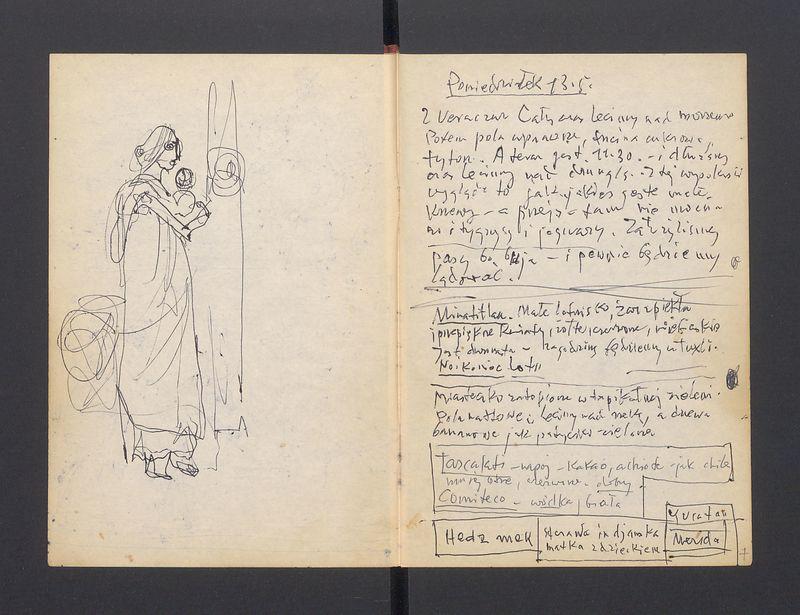 Poniedziałek 13.5.
z Veracruz Cały czas lecimy nad morzem
Potem pola uprawne, trzcina cukrowa,
tytoń. A teraz jest 11.30. – i
czas lecimy nad dżunglą. Z tej wysokości
wygląda to jak jakieś gęste małe
Krzewy – a przejść tam nie można
i tygrysy i jaguary.
pasy bo buja – i pewnie będziemy
lądować.
Minatitlan. Małe lotnisko,
i przepiękne Kwiaty, żółte, czerwone, niebieskie
Jest dwunasta – za godzinę będziemy w Tuxtli.
Na koniec lotu
Miasteczko zatopione w tropikalnej zieleni.
Pola nawozowe i lecimy nad rzeką, a drzewa
bananowe jak zielone
Tascalate – napój – kakao, achiote – jak chile
mniej ostre, czerwone – dobry
Comiteco – wódka, biała
Hedz mek
stara indjanka
matka z dzieckiem
Yucatan
Merida